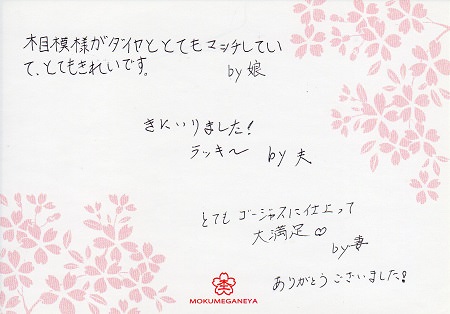 木目模様がダイヤととてもマッチしてい
て、とてもきれいです。
by 娘
きにいりました!
ラッキ〜 by 夫
とても ゴージャスに仕上って
大満足♡
by妻
ありがとうございました!
MOKUMEGANEYA